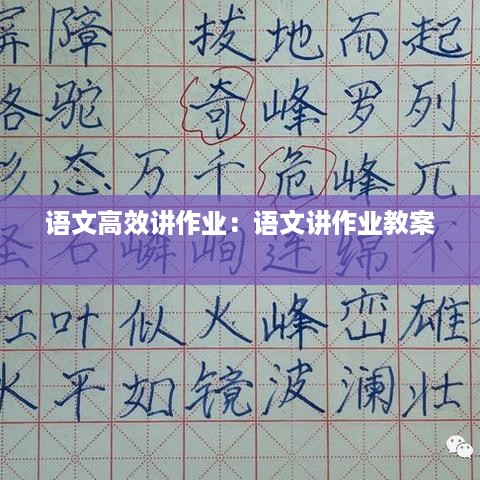 屏障 拔地而起
骆驼 奇峰罗列
形态万千 危峰兀
语文高效讲作业：语文讲作业教案
怪石嶙峋 连绵不
红叶似火 峰峦雄
水平如镜 波澜壮